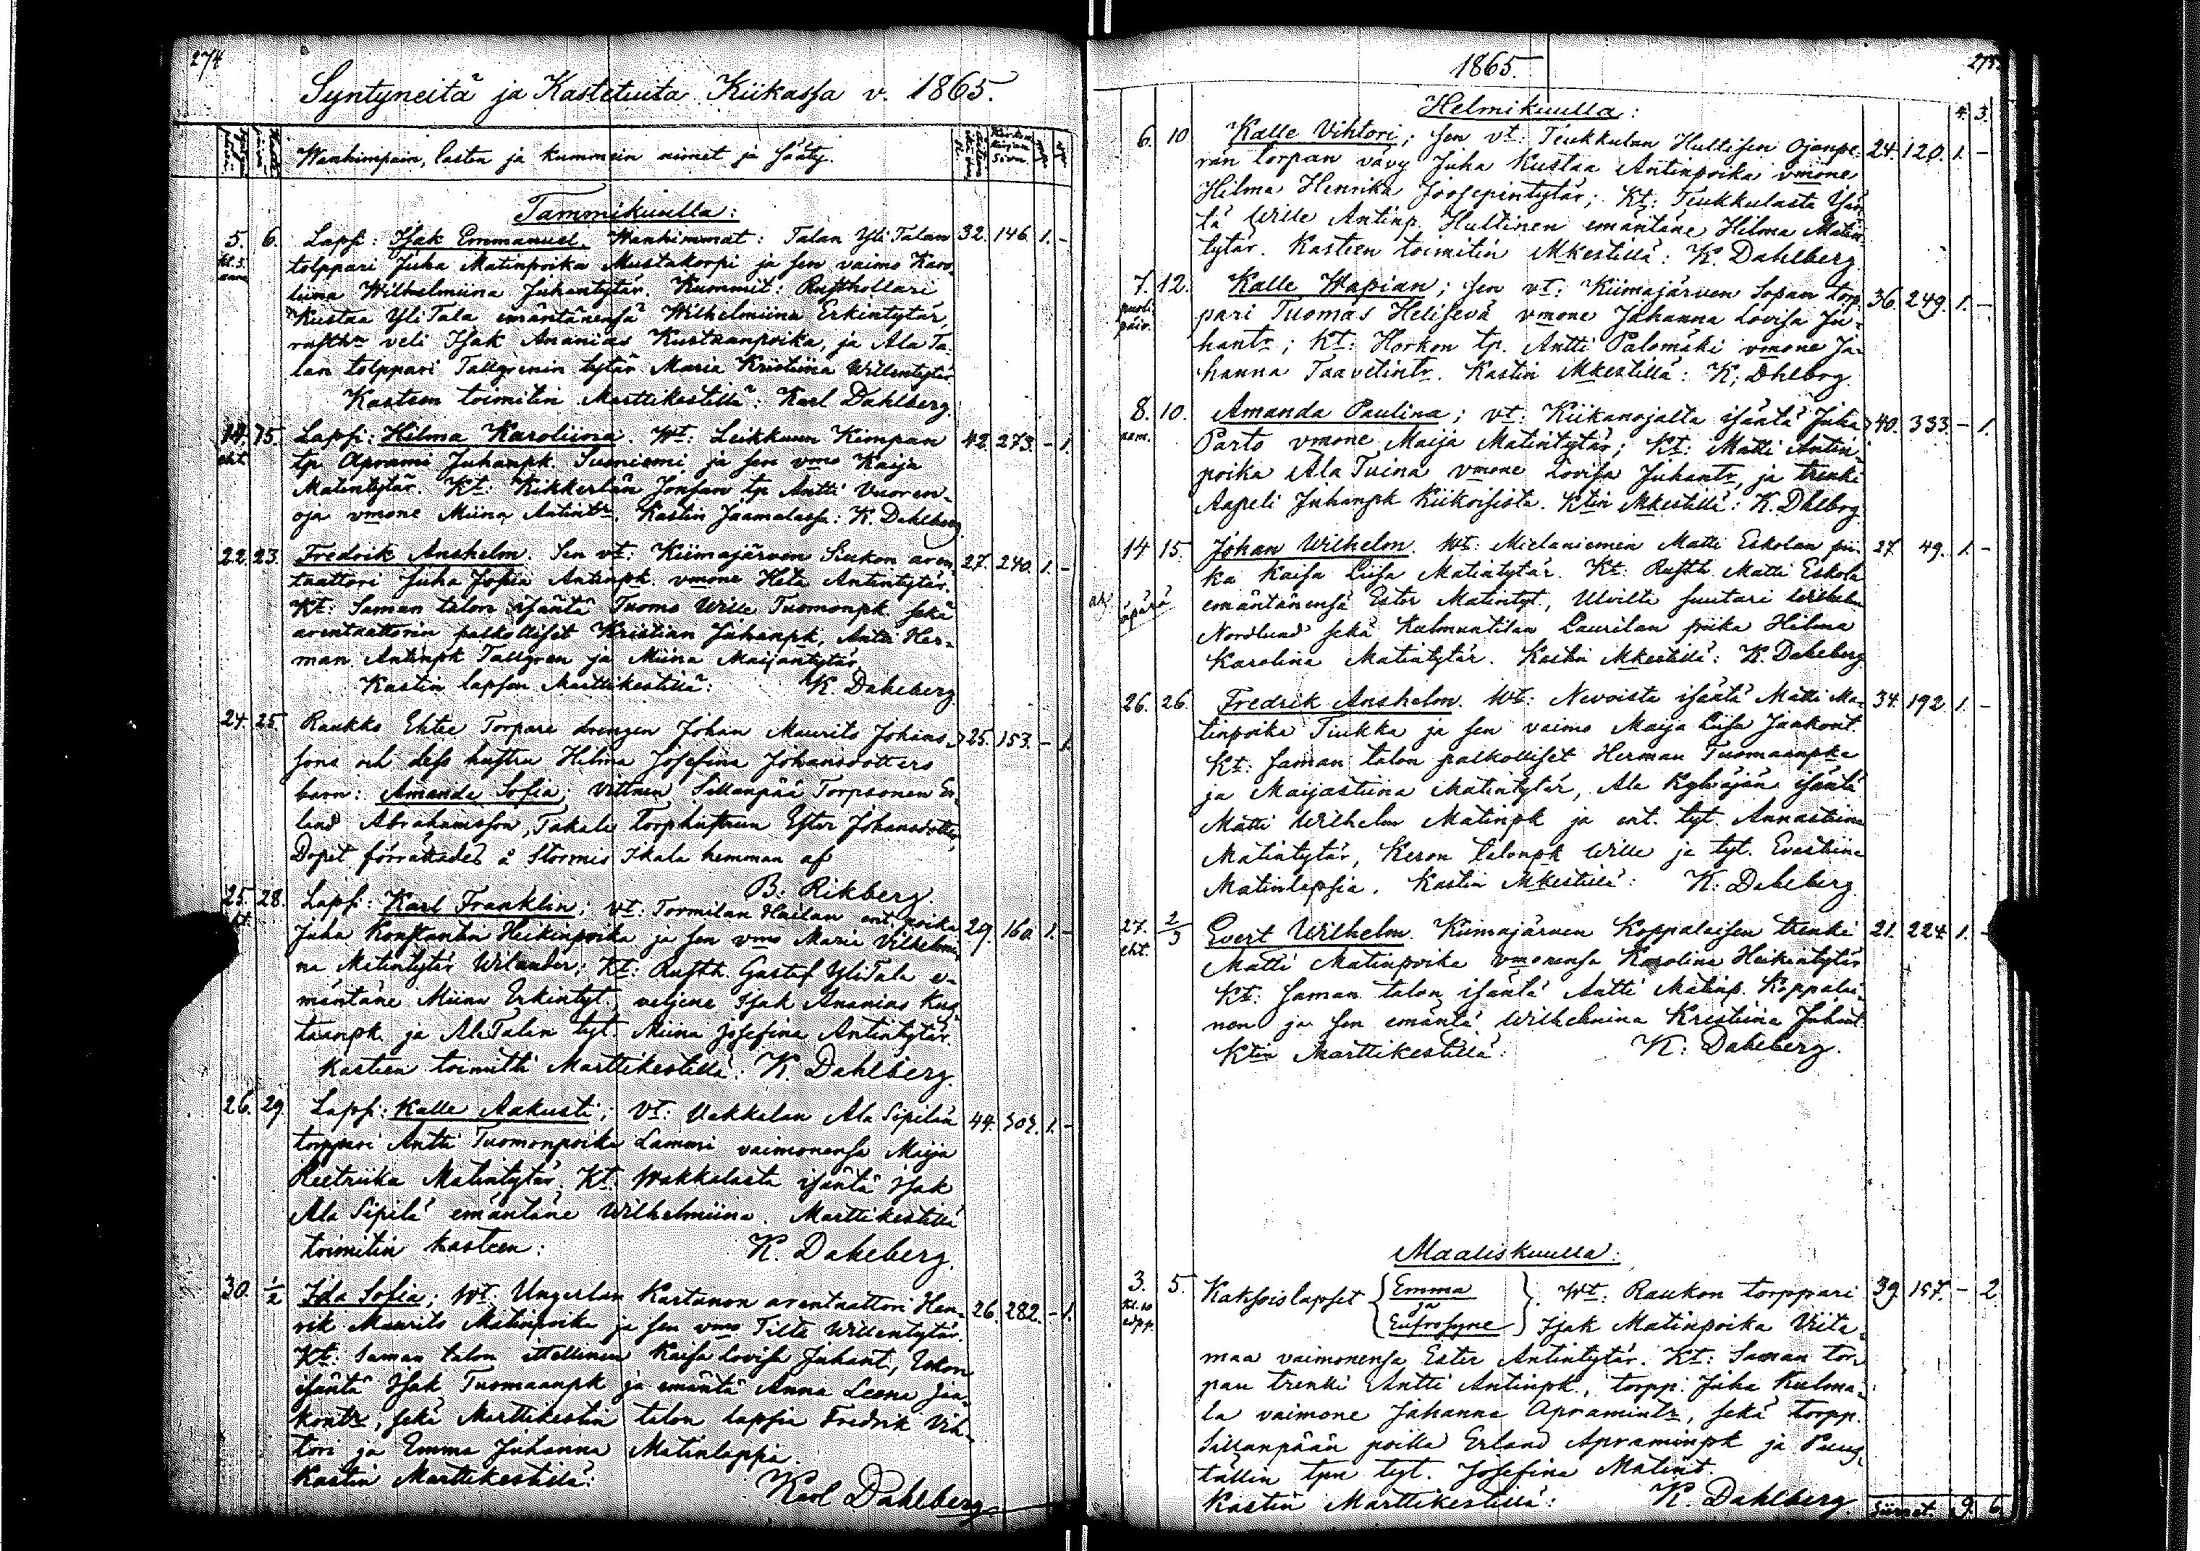 274
Syntyneitä ja Kastetuita Kiikassa v. 1865.
Wanhimpain, lasten ja kummein nimet ja sääty.
Tammikuulla:
5. 6. Lapsi: Isak Emmanuel. Wanhimmat: Talan YliTalan 32. 146 1. -
tolppari Juha Matinpoika Mustakorpi ja sen vaimo Karo-
liina Wilhelmiina Juhantytär. Kummit: Rusthollari
Kustaa YliTala emäntänensä Wilhelmiina Erkintytär,
rusthn veli Isak Ananias Kustaanpoika, ja Ala Ta-
lan tolppari Tallgrenin tytär Maria Kristiina Willentytär.
Kasteen toimitin Marttikestillä: Karl Dahlberg.
14. 15. Lapsi: Hilma Karoliina. Wt: Leikkuun Kimpan 42. 273. - 1.
eht. tp. Aprami Juhanpk. Suoniemi ja sen vmo Kaija
Matintytär. Kt: Kikkerlän Jonsan tp Antti Vuoren-
oja vmone Miina Antintr. Kastin Jaamalassa: K. Dahlberg
22. 23. Fredrik Anshelm. Sen vt: Kiimajärven Siukon aren- 27. 240. 1. -
taattori Juha Josia Antinpk. vmone Heta Antintytär.
Kt: Saman talon isäntä Tuomo Wille Tuomonpk sekä
arentaattorin palkolliset Kristian Juhanpk, Antti Her-
man Antinpk Tallgren ja Miina Maijantytär
Kastin lapsen Marttikestillä: K. Dahlberg.
24. 25. Raukko Ehtee Torpare drengen Johan Maurits Johans- 25. 153. - 1.
sons och dess hustru Hilma Josefina Johansdotters
barn: Amanda Sofia; vittnen Sillanpää Torpsonen Er-
land Abrahamsson, Takala torphustrun Ester Johansdotter,
Dopet förrättades å Stormis Ikala hemman af
B: Rikberg.
25. 28. Lapsi: Karl Franklin; vt: Tormilan Hailan ent. poika 29. 160. 1. -
Juha Konstantin Heikinpoika ja sen vmo Maria Vilhelmi-
na Matintytär Wilander; Kt: Rusth. Gustaf YliTala e-
mäntäne Miina Erkintyt., veljene Isak Ananias Kus-
taanpk. ja AlaTalan tyt. Miina Josefina Antintytär.
Kasteen toimitti Marttikestillä: K. Dahlberg
26. 29. Lapsi: Kalle Aakusti; Vt: Uakkalan Ala Sipilän 44. 303. 1. -
torppari Antti Tuomonpoika Lammi vaimonensa Maija
Reetriika Matintytär. Kt. Wakkalasta isäntä Isak
Ala Sipilä emäntäne Wilhelmiina. Marttikestillä
toimitin kasteen: K. Dahlberg.
30. 1/2 Ida Sofia; Wt: Ungerlan Kartanon arentaattori Hen- 26. 282. - 1.
rik Maurits Matinpoika ja sen vmo Tilta Willentytär.
Kt: Saman talon ittellinen Kaisa Lovisa Juhant.,
isäntä Isak Tuomaanpk ja emäntä Anna Leena Jaa-
kontr, sekä Marttikestin talon lapsia Fredrik Vih-
tori ja Emma Juhanna Matinlapsia.
Kastin Marttikestillä: Karl Dahlberg
1865.
275.
Helmikuulla: 4. 3.
6. 10 Kalle Vihtori; sen vt: Tiukkulan Hullisen Ojanpe- 24. 120. 1. -
rän torpan vävy Juha Kustaa Antinpoika vmone
Hilma Henrika Joosepintytär; Kt: Tiukkulasta Isän-
tä Wille Antinp. Hultinen emäntäne Hilma Matin-
tytär. Kasteen toimitin Mkestillä: K. Dahlberg.
7. 12. Kalle Wapian; sen vt: Kiimajärven Sopan torp- 36. 249. 1. -
puoli päiv. pari Tuomas Helisevä vmone Johanna Lovisa Ju-
hantr; Kt: Horkon tp. Antti Palomäki vmone Jo-
hanna Taavetintr. Kastin Mkestillä: K; Dhlbrg.
8. 10. Amanda Paulina; vt: Kiikanojalta isäntä Juha 40. 333. - 1.
aam. Parto vmone Maija Matintytär; Kt: Matti Antin-
poika Ala Tuina vmone Lovisa Juhantr, ja trenki
Aapeli Juhanpk Kiikoisista. Ktin Mkestillä: K. Dhlbrg
14 15. Johan Wilhelm. Wt: Mielaniemen Matti Eskolan pii- 27. 49. 1. -
äpärä ka Kaisa Liisa Matintytär. Kt: Rusth. Matti Eskola
emäntänensä Ester Matintyt., Ulvilta suutari Wilhelm
Nordlund sekä Kulmuntilan Laurilan piika Hilma
Karolina Matintytär. Kastin Mkestillä: K. Dahlberg
26. 26. Fredrik Anshelm. Wt: Nevoista isäntä Matti Ma- 34. 192 1. -
tinpoika Tiukka ja sen vaimo Maija Liisa Jaakont.
Kt: saman talon palkolliset Herman Tuomaanpka
ja Maijastiina Matintytär, Ala Kylväjän isäntä
Matti Wilhelm Matinpk ja ent. tyt. Annastiina
Matintytär, Keron talonpk Wille ja tyt. Evastiina
Matinlapsia. Kastin Mkestillä: K. Dahlberg
27. 2/3 Evert Wilhelm. Kiimajärven Koppalaisen trenki 21. 224 1. -
eht. Matti Matinpoika vmonensa Karolina Heikintytär
Kt: saman talon isäntä Antti Matinp. Koppalai-
nen ja sen emäntä Wilhelmina Kristiina Juhant.
Ktin Marttikestillä: K: Dahlberg.
Maaliskuulla:
3. 5. Kaksoislapset {Emma ja Eufrosyne}. Wt: Raukon torppari 39. 157. - 2.
kl. 10 Isjak Matinpoika Viita-
maa vaimonensa Ester Antintytär. Kt: Saman tor-
pan trenki Antti Antinpk., torpp. Juha Kulma-
la vaimone Johanna Apramintr, sekä torpp.
Sillanpään poika Erland Apraminpk ja Puus-
tallin tpn tyt. Josefina Matint.
Kastin Marttikestillä: K. Dahlberg.
Siirret. 9. 6.